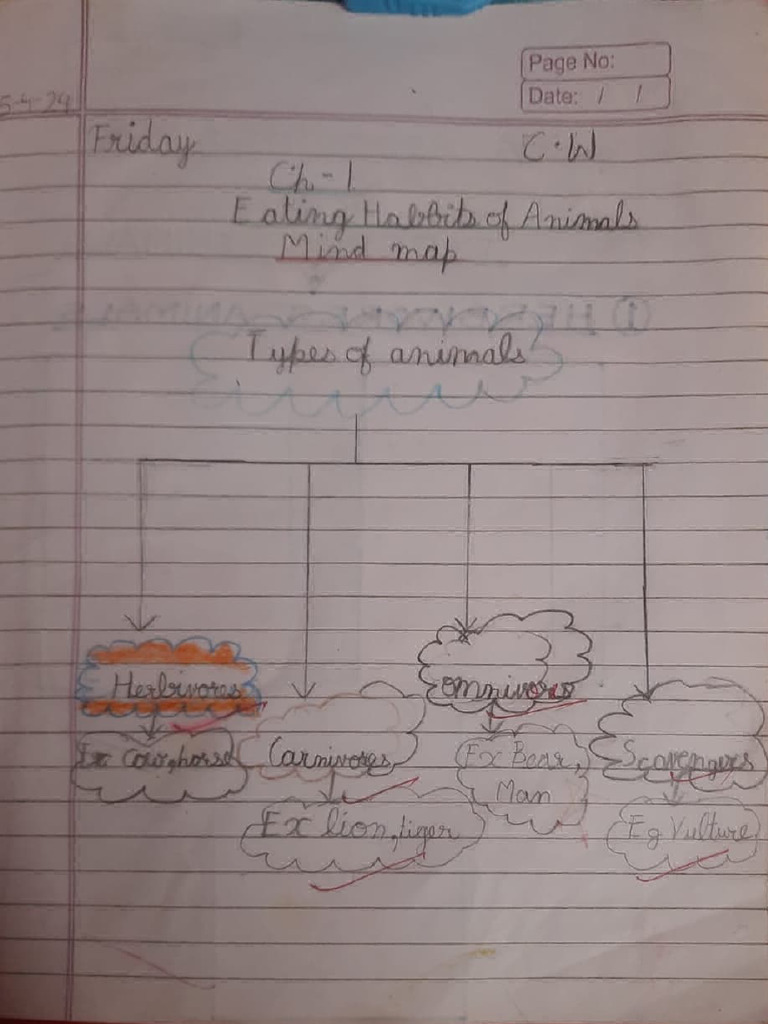 Page No:
5-4-24
Date: / /
Friday
C.W
Ch-1
Eating Habbits of Animals
Mind map
Types of animals
Herbivores
omnivores
Ex Cow, horse
Carnivores
Ex Bear,
Man
Scavengers
Ex lion, tiger
Eg Vulture